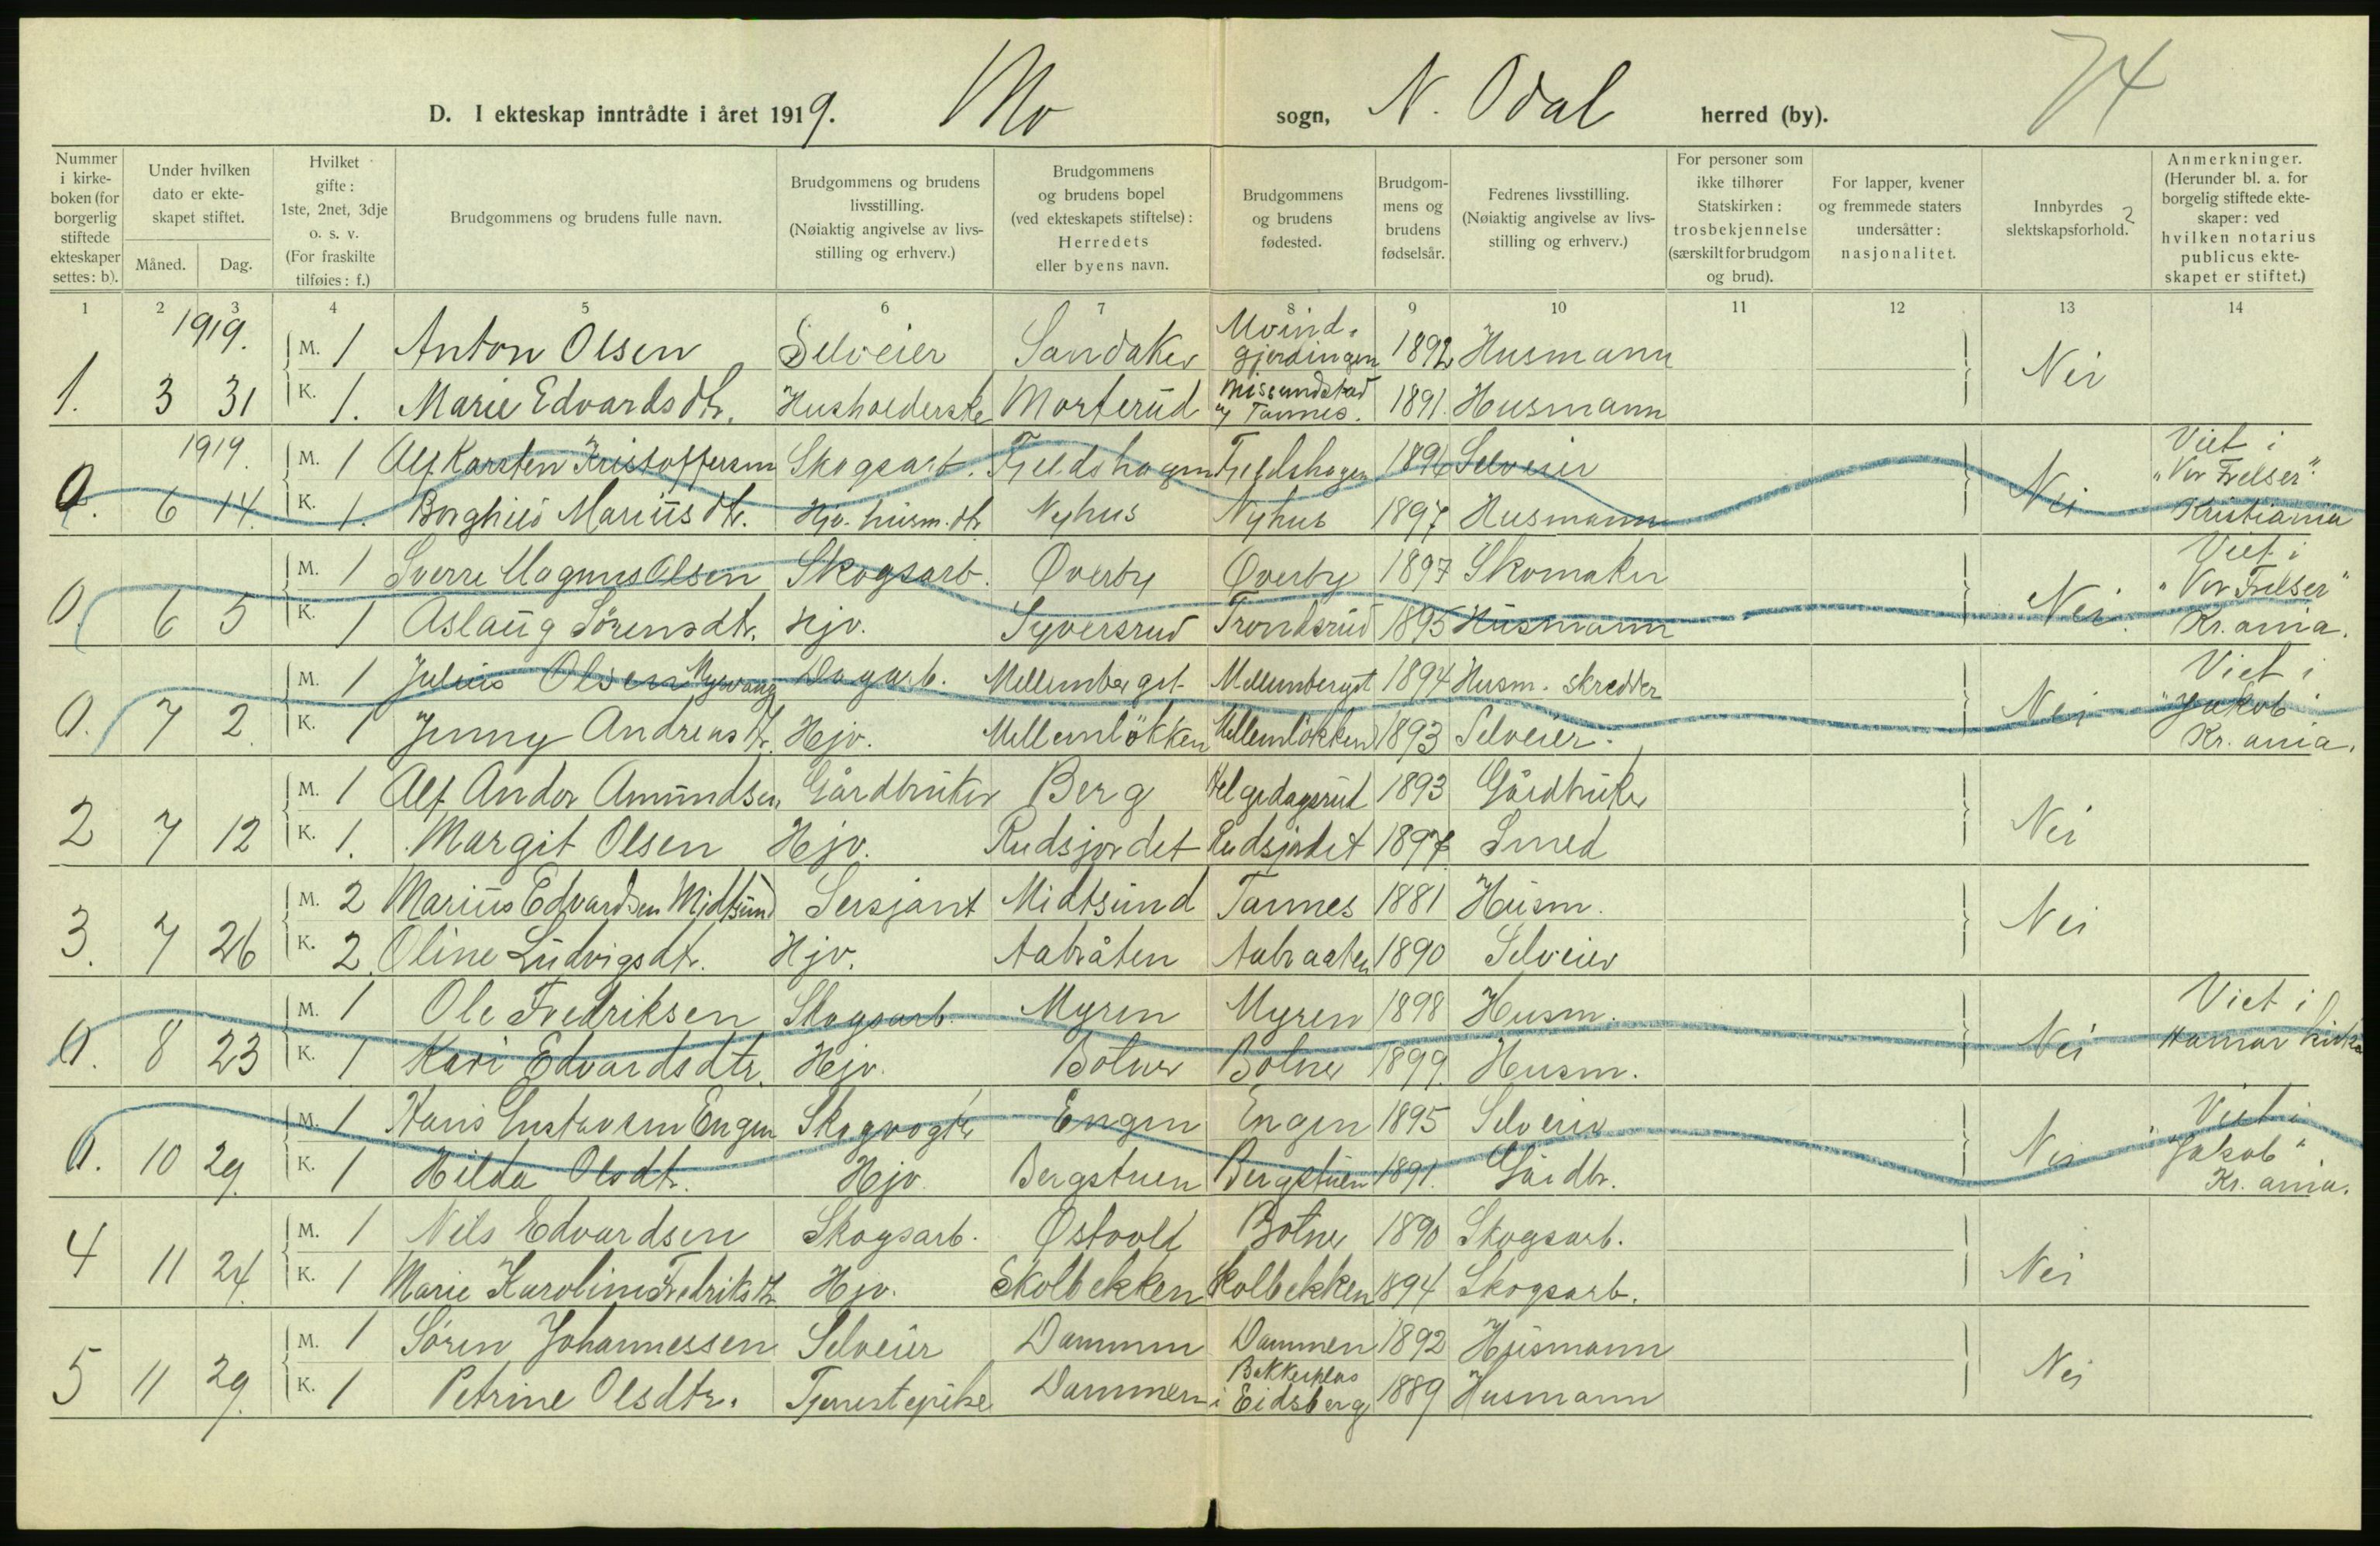 D. I ekteskap inntrådte i året 1919. Mo sogn, N. Odal herred (by). 74
Nummer i kirkeboken (for borgerlig stiftede ekteskaper settes: b).
Under hvilken dato er ekteskapet stiftet. Måned. Dag.
Hvilket gifte: 1ste, 2net, 3dje o. s. v. (For fraskilte tilføies: f.)
Brudgommens og brudens fulle navn.
Brudgommens og brudens livsstilling. (Nøiaktig angivelse av livsstilling og erhverv.)
Brudgommens og brudens bopel (ved ekteskapets stiftelse): Herredets eller byens navn.
Brudgommens og brudens fødested.
Brudgommens og brudens fødselsår.
Fedrenes livsstilling. (Nøiaktig angivelse av livsstilling og erhverv.)
For personer som ikke tilhører Statskirken: trosbekjennelse (særskilt for brudgom og brud).
For lapper, kvener og fremmede staters undersåtter: nasjonalitet.
Innbyrdes slektskapsforhold. 2
Anmerkninger. (Herunder bl. a. for borgelig stiftede ekteskaper: ved hvilken notarius publicus ekteskapet er stiftet.)
1 2 3 4 5 6 7 8 9 10 11 12 13 14
1919. M. 1 Anton Olsen Selveier Sandaker Moind. gjerdingen 1892 Husmann Nei
1. 3 31 K. 1. Marie Edvardsdtr. Husholderske Morterud Missundstad Tannes. 1891. Husmann
1919. M. 1 Alf Karsten Kristoffersen Skogsarb. Fjeldshagen Fjeldshagen 1896 Selveier Nei Viet i "Vor Frelser"
0. 6 14. K. 1. Borghild Mariusdtr. Hjv. husm. dtr. Nyhus Nyhus 1897 Husmann Kristiania
M. 1 Sverre Magnus Olsen Skogsarb. Overby Overby 1897 Skomaker Viet i "Vor Frelser"
0. 6 5 K. 1 Aslaug Sörensdtr. Hjv. Syversrud Trondsrud 1895 Husmann Nei. Kr. ania.
M. 1 Julius Olsen Myrvang Dagarb. Mellemberget Mellemberget 1894 Husm. skredder Viet i
0. 7 2. K. 1 Jenny Andreasdtr. Hjv. Mellemlökken Mellemlökken 1893 Selveier. Nei "Jakob" Kr. ania.
M. 1 Alf Andor Amundsen Gårdbruker Berg Helgedagsrud 1893 Gårdbruker
2 7 12 K. 1. Margit Olsen Hjv. Rudsjordet Rudsjordet 1897 Smed Nei
M. 2 Marius Edvardsen Midtsund Sersjant Midtsund Tannes 1881 Husm. Nei
3. 7 26 K. 2. Oline Ludvigsdtr. Hjv. Aabråten Aabraaten 1890 Selveier
M. 1 Ole Fredriksen Skogsarb. Myren Myren 1898 Husm. Viet i
0. 8 23 K. 1 Kari Edvardsdtr. Hjv. Botner Botner 1899. Husm. Nei Hamar kirke
M. 1 Hans Gustavsen Engen Skogvogter Engen Engen 1895 Selveier Viet i
0. 10 29. K. 1 Hilda Olsdtr. Hjv. Bergstuen Bergstuen 1891. Gårdbr. Nei "Jakob" Kr. ania.
M. 1 Nils Edvardsen Skogsarb. Østvold Botner 1890 Skogsarb.
4 11 24. K. 1 Marie Karoline Fredriksdtr. Hjv. Skolbekken Skolbekken 1894 Skogsarb. Nei
M. 1 Sören Johannessen Selveier Dammen Dammen 1892 Husmann
5 11 29. K. 1 Petrine Olsdtr. Tjenestepike Dammen Bakkerplas i Eidsberg 1889 Husmann Nei